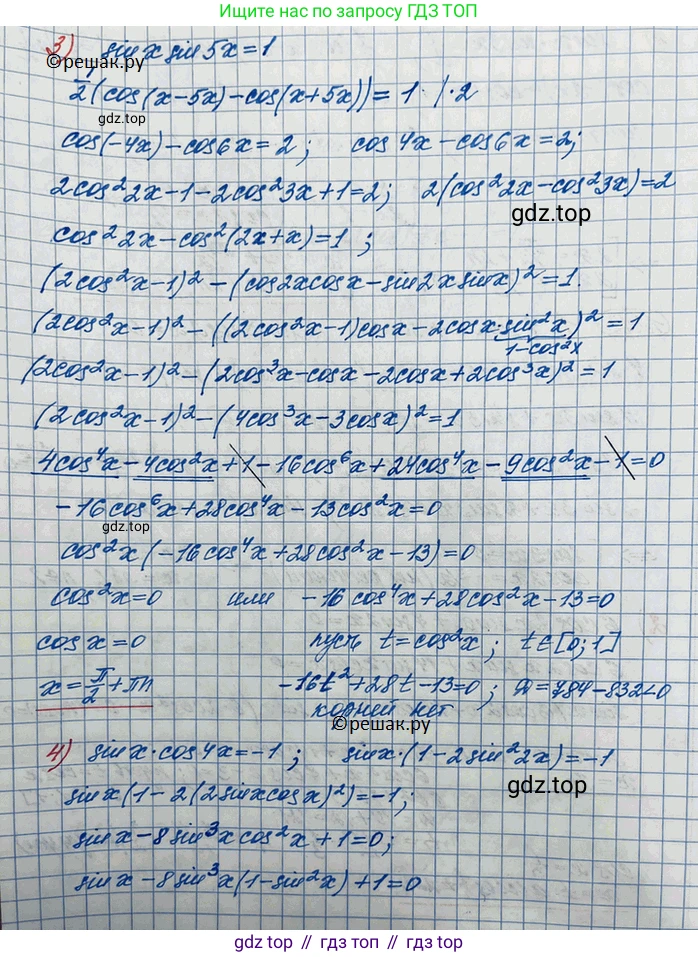 Ищите нас по запросу ГДЗ ТОП
3) sin x sin 5x = 1
©решак.ру
1/2 (cos(x-5x) - cos(x+5x)) = 1 · | · 2
cos(-4x) - cos6x = 2 ; cos 4x - cos6x = 2;
2cos²2x - 1 - 2cos²3x + 1 = 2; 2(cos²2x - cos²3x) = 2
gdz.top
cos²2x - cos²(2x+x) = 1 ;
(2cos²x-1)² - (cos2x cosx - sin2x sinx)² = 1.
(2cos²x-1)² - ((2cos²x-1)cosx - 2cosx·sin²x)² = 1
1-cos²x
(2cos²x-1)² - (2cos³x - cosx - 2cosx + 2cos³x)² = 1
(2cos²x-1)² - (4cos³x - 3cosx)² = 1
4cos⁴x - 4cos²x + 1 - 16cos⁶x + 24cos⁴x - 9cos²x - 1 = 0
-16cos⁶x + 28cos⁴x - 13cos²x = 0
gdz.top
cos²x (-16cos⁴x + 28cos²x - 13) = 0
cos²x = 0 или -16cos⁴x + 28cos²x - 13 = 0
cosx = 0 пусть t = cos²x ; t∈[0;1]
x = π/2 + πn -16t² + 28t - 13 = 0 ; D = 784 - 832 < 0
корней нет
©решак.ру
4) sinx·cos4x = -1 ; sinx·(1 - 2sin²2x) = -1
gdz.top
sinx(1 - 2(2sinxcosx)²) = -1;
sinx - 8sin³x cos²x + 1 = 0;
sinx - 8sin³x(1 - sin²x) + 1 = 0
gdz.top // гдз.топ // гдз.top